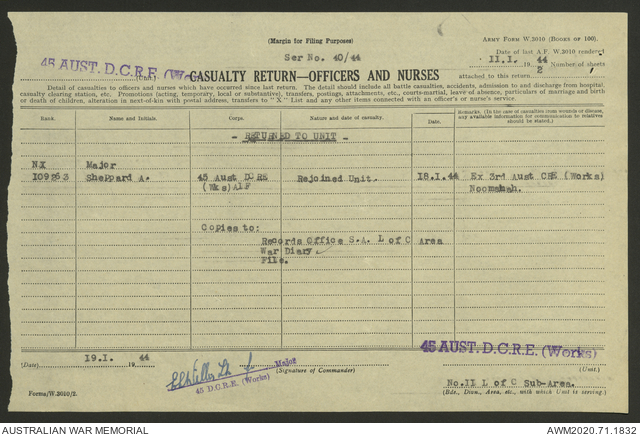 (Margin for Filing Purposes)
ARMY FORM W.2010 (BOOKS OF 100).
Ser No. 40/44
Date of last A.F. W.2010 rendered
11.I. 1944 Number of sheets
45 AUST. D.C.R.E. (Wo
(Unit)
CASUALTY RETURN—OFFICERS AND NURSES
attached to this return 2 1
Detail of casualties to officers and nurses which have occurred since last return. The detail should include all battle casualties, accidents, admission to and discharge from hospital, casualty clearing station, etc. Promotions (acting, temporary, local or substantive), transfers, postings, attachments, etc., courts-martial, leave of absence, particulars of marriage and birth or death of children, alteration in next-of-kin with postal address, transfers to "X" List and any other items connected with an officer's or nurse's service.
Rank.
Name and Initials.
Corps.
Nature and date of casualty.
Date.
Remarks. (In the case of casualties from wounds or disease, any available information for communication to relatives should be stated.)
- RETURNED TO UNIT -
NX Major
109963 Sheppard A. 45 Aust DCRE Rejoined Unit. 18.I.44 Ex 3rd Aust CRE (Works)
(Wks) AIF Noonamah.
Copies to:
Records Office S.A. L of C Area
War Diary
File.
45 AUST. D.C.R.E. (Works)
(Date) 19.I. 1944
Major
45 D.C.R.E. (Works)
(Signature of Commander)
(Unit.)
No.II L of C Sub-Area.
(Bde., Divn., Area, etc., with which Unit is serving.)
Forms/W.2010/2.
AUSTRALIAN WAR MEMORIAL
AWM2020.71.1832